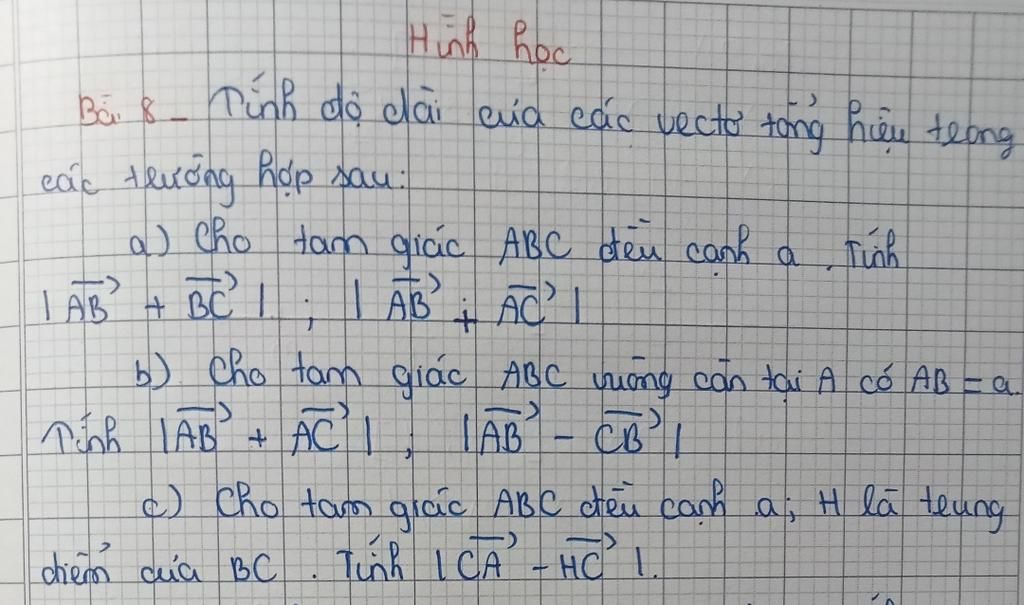 Hình học
Bài 8 - Tính độ dài của các vectơ tổng hiệu trong
các trường hợp sau:
a) Cho tam giác ABC đều cạnh a. Tính
|\overrightarrow{AB} + \overrightarrow{BC}| ; |\overrightarrow{AB} + \overrightarrow{AC}|
b) Cho tam giác ABC vuông cân tại A có AB = a.
Tính |\overrightarrow{AB} + \overrightarrow{AC}| , |\overrightarrow{AB} - \overrightarrow{CB}|
c) Cho tam giác ABC đều cạnh a; H là trung
điểm của BC. Tính |\overrightarrow{CA} - \overrightarrow{HC}|.